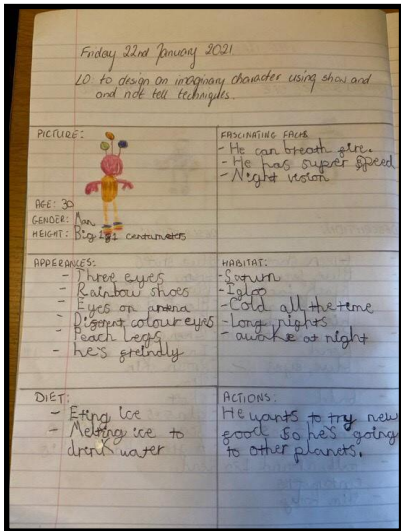 Friday 22nd January 2021
LO to design an imaginary character using show and
and not tell techniques.
PICTURE:
AGE: 30
GENDER: Man
HEIGHT: Big 191 centameters
FASCINATING FACTS
- He can breath fire.
- He has super speed
- Night vision
APPERANCES:
- Three eyes
- Rainbow shoes
- Eyes on antna
- Digrent colour eyes
- Peach Legs
- he's greindly
HABITAT:
- Saturn
- Igloo
- Cold all the time
- Long nights
- awake at night
DIET:
- Eting ice
- Melting ice to
drink water
ACTIONS:
He wants to try new
good so he's going
to other planets.